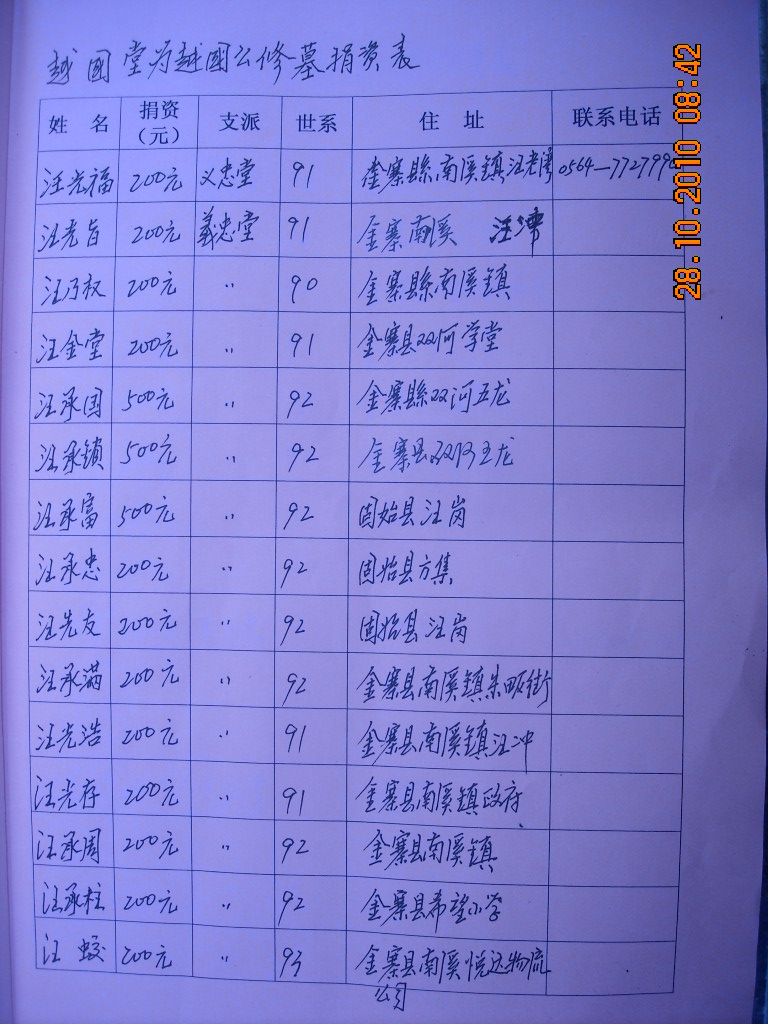 越國堂为越國公修墓捐资表
姓 名 捐资（元） 支派 世系 住 址 联系电话
汪光福 200元 义忠堂 91 金寨縣南溪镇汪老湾 0564-772799
汪光旨 200元 義忠堂 91 金寨南溪 汪沖
汪乃权 200元 〃 90 金寨縣南溪镇
汪金堂 200元 〃 91 金寨县双河学堂
汪承国 500元 〃 92 金寨縣双河五龙
汪承锁 500元 〃 92 金寨县双河五龙
汪承富 500元 〃 92 固始县汪岗
汪承忠 200元 〃 92 固始县方集
汪先友 200元 〃 92 固始县汪岗
汪承满 200元 〃 92 金寨县南溪镇朱畈街
汪光浩 200元 〃 91 金寨县南溪镇汪冲
汪光存 200元 〃 91 金寨县南溪镇政府
汪承周 200元 〃 92 金寨县南溪镇
汪承柱 200元 〃 92 金寨县希望小学
汪 蛟 200元 〃 93 金寨县南溪悦达物流
公司
28.10.2010 08:42